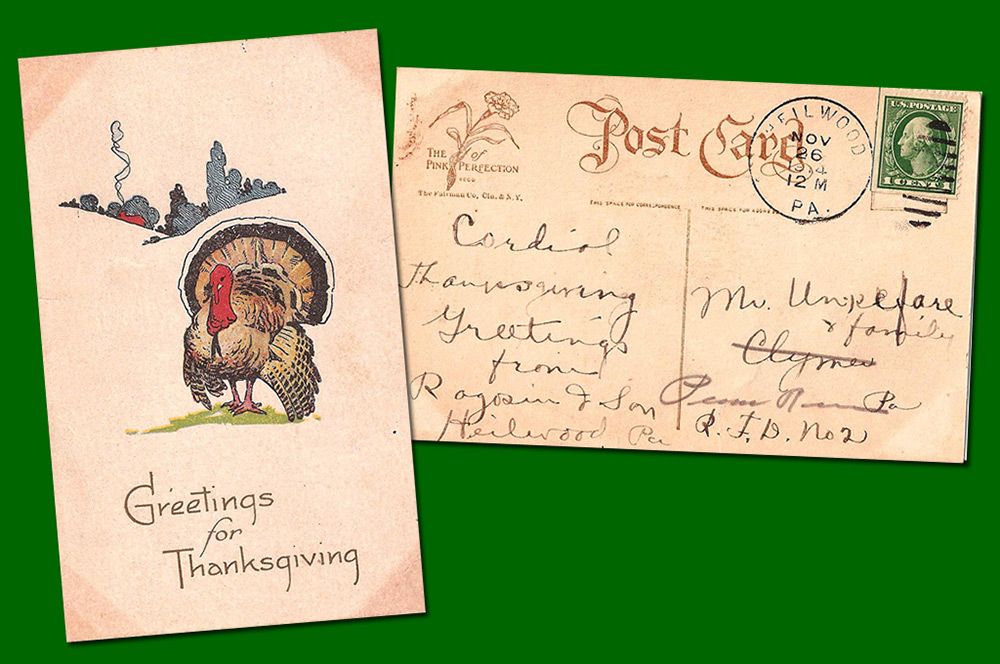 Greetings
for
Thanksgiving
THE of
PINK PERFECTION
The Fairman Co., Cin. & N.Y.
Post Card
THIS SPACE FOR CORRESPONDENCE
THIS SPACE FOR ADDRESS
HEILWOOD
NOV
26
12 M
PA.
U.S. POSTAGE
1 CENT 1
Cordial
Thanksgiving
Greetings
from
Ragosin & Son
Heilwood Pa
Mr.
& family
Clymer
Penn Run Pa
R.F.D. No 2